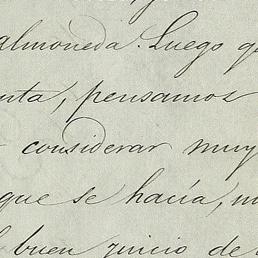 almoneda. Luego q
nta, pensamos
considerar muy
que se hacía, m
buen juicio de